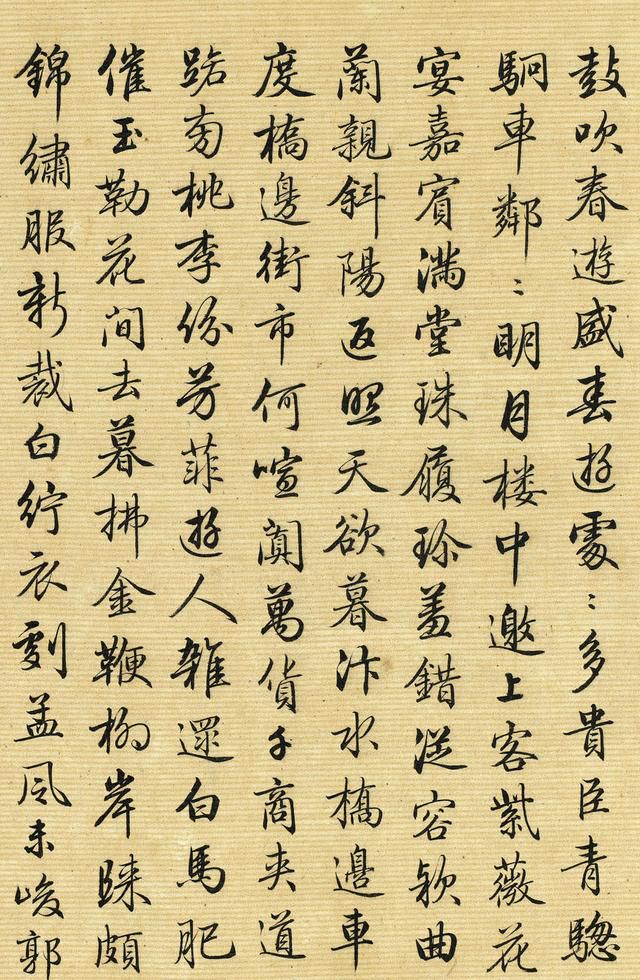 鼓吹春遊盛春遊處〻多貴臣青驄
駉車鄰〻明月楼中邀上客紫薇花
宴嘉賓滿堂珠履珍羞錯從容欵曲
蘭親斜陽返照天欲暮汴水橋邊車
度橋邊街市何喧闐萬貨千商夾道
路旁桃李份芳菲遊人雜還白馬肥
催玉勒花间去暮拂金鞭柳岸頗
錦繡服新裁白紵衣劇孟風未峻郭